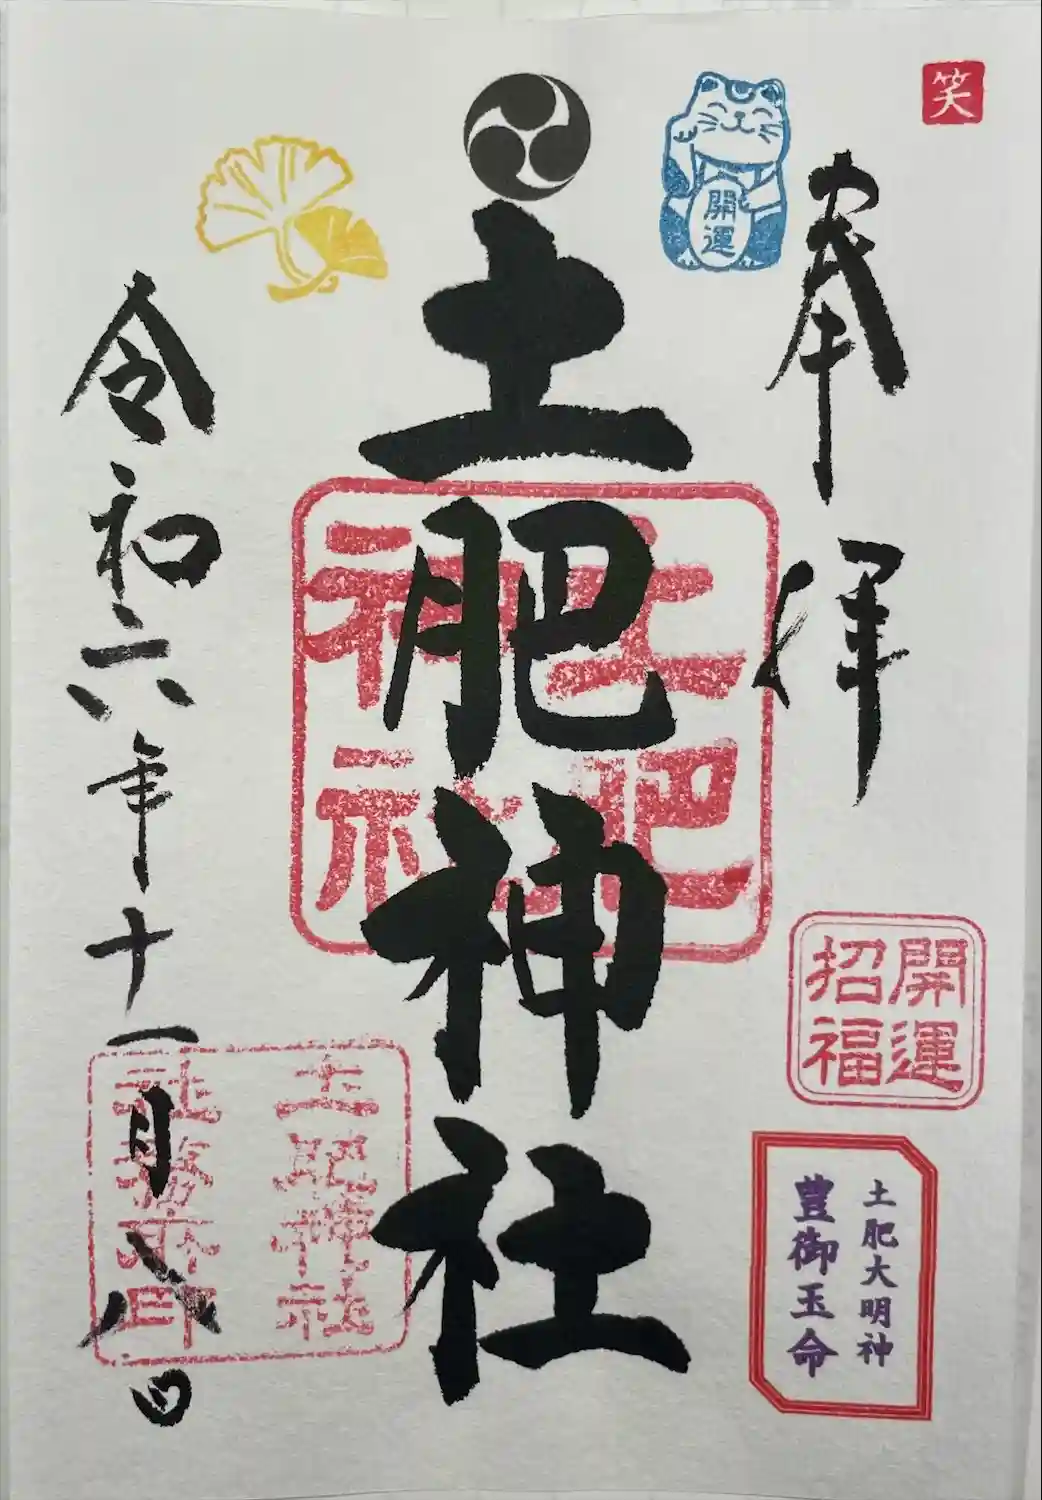 笑
奉拝
開運
開運
招福
土肥大明神
豊御玉命
土肥神社
土肥
神社
土肥神社
社務所印
令和六年十一月八日